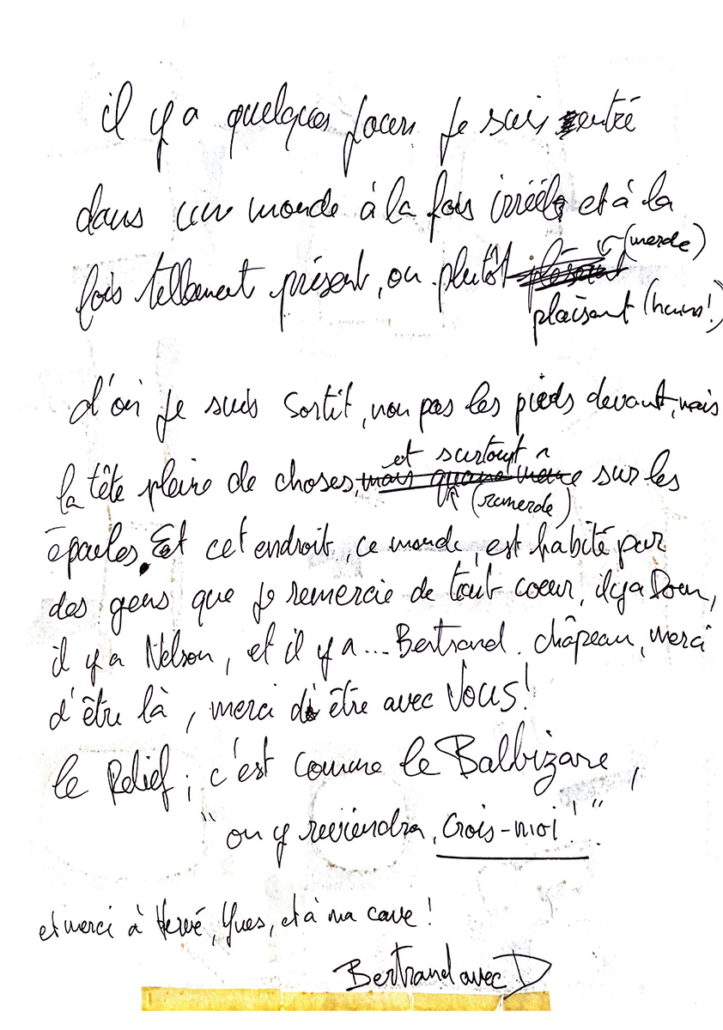 il y a quelques jours je suis entré
dans un monde à la fois irréel et à la
fois tellement présent, ou plutôt plaisant (merde)
plaisant (hum!)
d'où je suis sortit, non pas les pieds devant, mais
et surtout
la tête pleine de choses, mais quand même sur les
(remerde)
épaules. Et cet endroit, ce monde, est habité par
des gens que je remercie de tout coeur, il y a Dom,
il y a Nelson, et il y a... Bertrand. châpeau, merci
d'être là, merci d'être avec VOUS!
le Relief; c'est comme le Balbizare,
"on y reviendra, Crois-moi!".
et merci à Hervé, Yves, et à ma cave!
Bertrand avec D